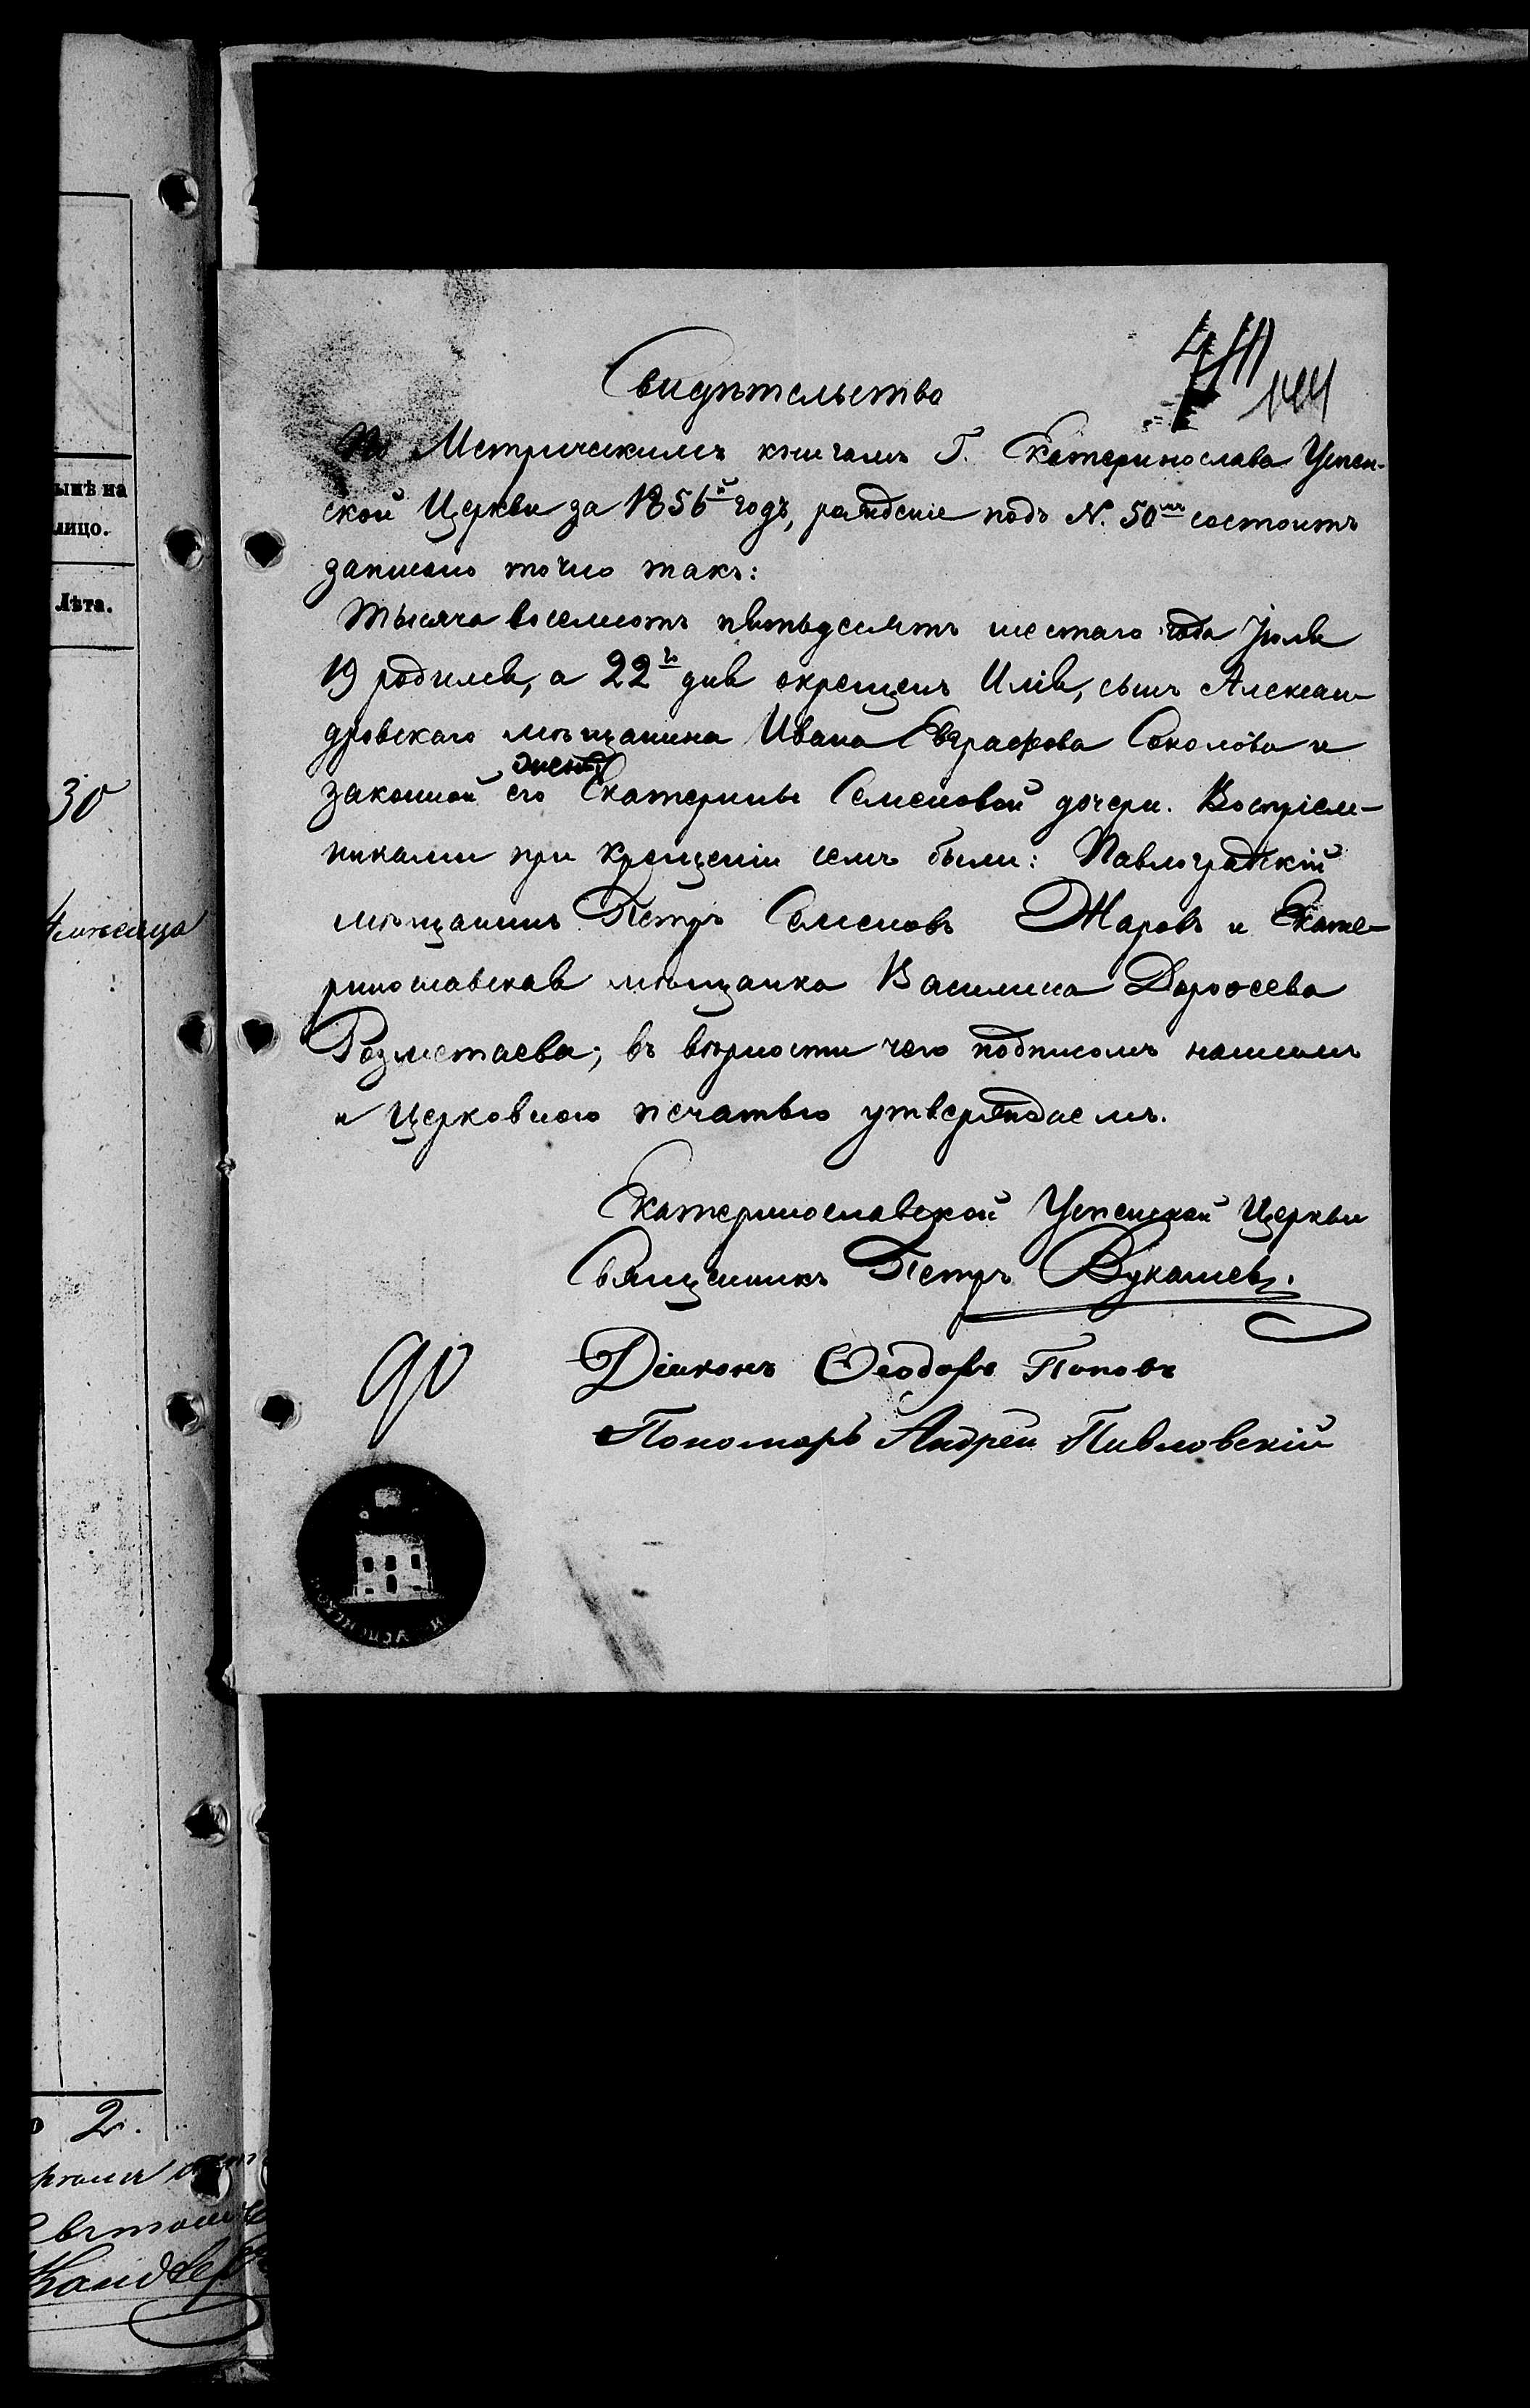 Свидѣтельство
144
По Метрическимъ книгамъ Г. Екатеринослава Успен-
ской Церкви за 1856й годъ, рожденіе подъ N. 50мъ состоитъ
записано точно такъ:
Тысяча восемьсотъ пятьдесятъ шестаго года Іюля
19 родился, а 22го дня окрещенъ Илія, сынъ Алексан-
дровскаго мѣщанина Ивана Евграфова Соколова и
законной его жены Екатерины Семеновой дочери. Воспріем-
никами при крещеніи семъ были: Павлоградскій
мѣщанинъ Петръ Семеновъ Жаровъ и Екате-
ринославская мѣщанка Василиса Дороѳеева
въ вѣрности чего подписомъ нашимъ
и Церковною печатью утверждаемъ.
Екатеринославской Успенской Церкви
Священникъ Петръ
Діаконъ Ѳеодоръ Поповъ
Пономарь Андрей Павловскій
90
ынѣ на
лицо.
Лѣта.
30
4 мѣсяца
2.